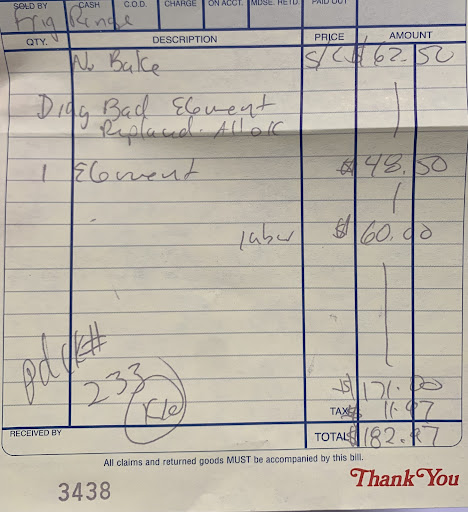 SOLD BY CASH C.O.D. CHARGE ON ACCT. MDSE. RETD. PAID OUT
Frig Range
QTY. DESCRIPTION PRICE AMOUNT
No Bake S/C $ 62.50
Diag Bad Element
Replaced. All OK
1 Element $ 48.50
labor $ 60.00
pd ck#
233
171.00
TAX $ 11.97
RECEIVED BY TOTAL $ 182.97
All claims and returned goods MUST be accompanied by this bill.
3438 Thank You